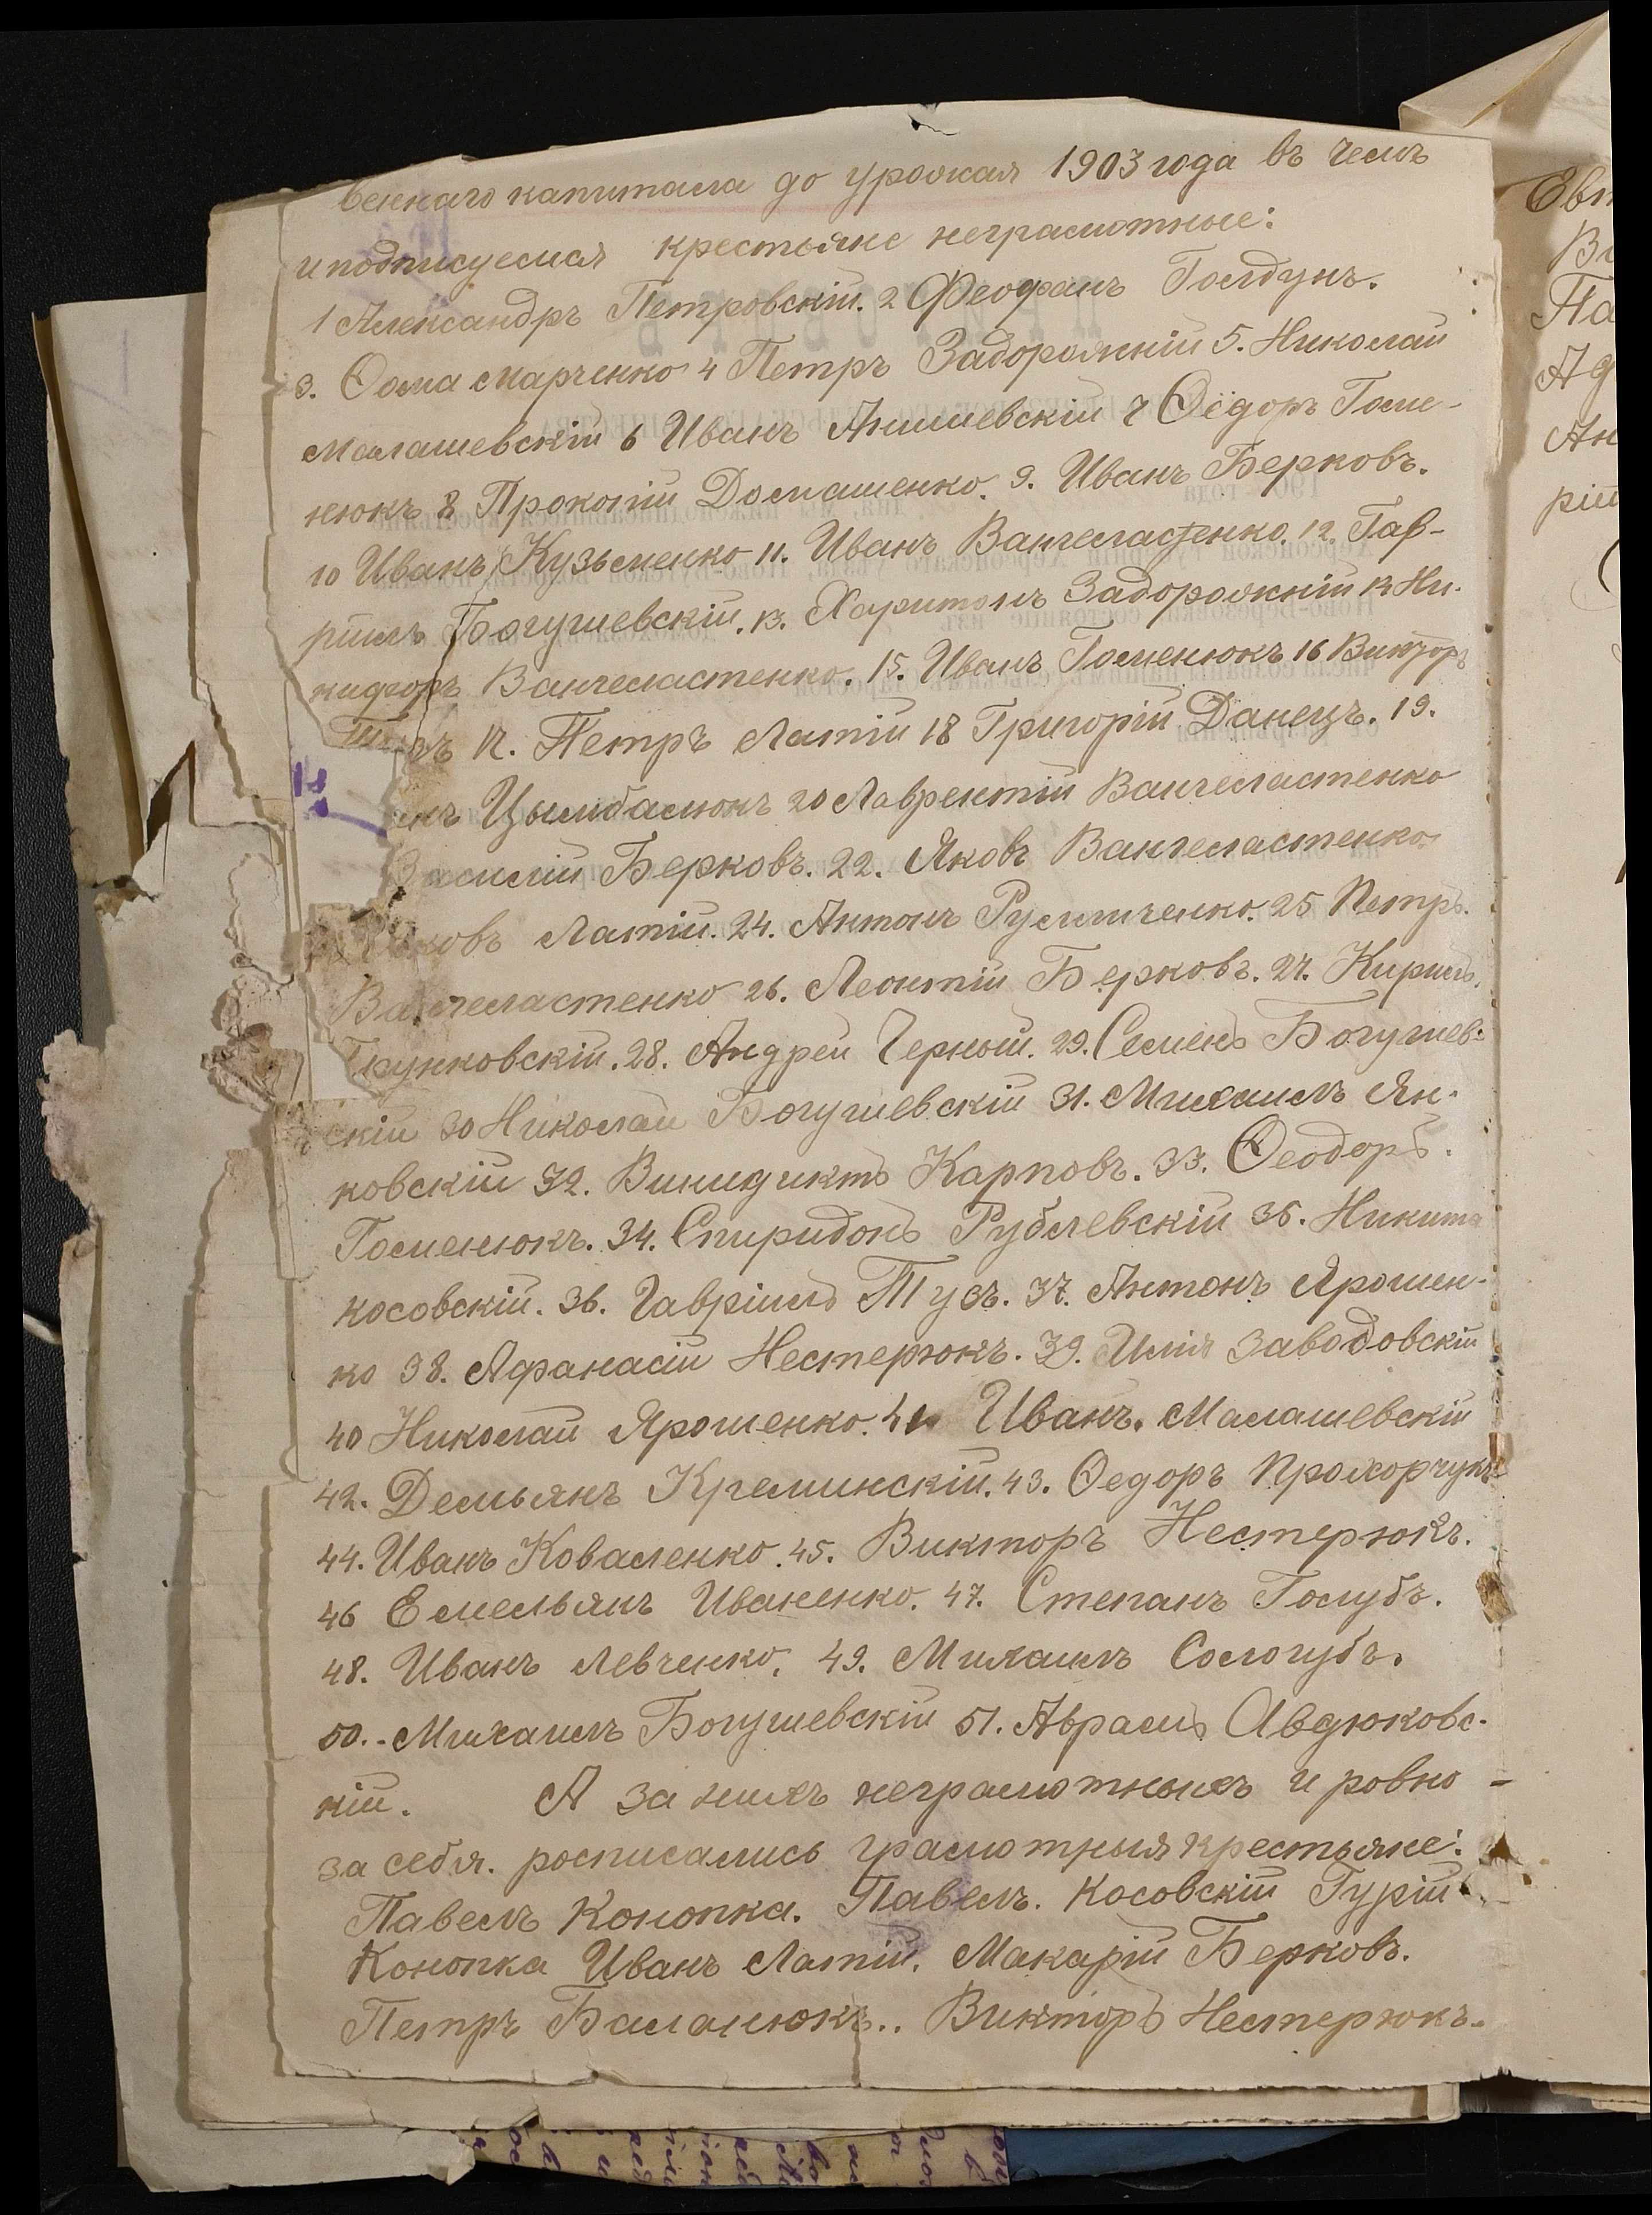 веннаго капитала до урожая 1903 года въ чемъ
и подписуемся крестьяне неграмотные:
1 Александръ Петровскій. 2 Феофанъ Голдунъ.
3. Ѳома Марченко 4 Петръ Задорожній 5. Николай
Малашевскій 6 Иванъ 7 Ѳедоръ Гоме-
нюкъ 8 Прокопій Домашенко. 9. Иванъ Берковъ.
10 Иванъ Кузьменко 11. Иванъ Вангеластенко. 12. Гав-
ріилъ Богушевскій. 13. Харитонъ Задорожній 14 Ни-
кифоръ Вангеластенко. 15. Иванъ Гоменюкъ 16 Викторъ
17. Петръ Латій 18 Григорій Данецъ. 19.
Цымбалюкъ 20 Лаврентій Вангеластенко
Василій Берковъ. 22. Яковъ Вангеластенко
Яковъ Латій. 24. Антонъ 25 Петръ.
Вангеластенко 26. Леонтій Берковъ. 27. Кирилъ
Трунковскій. 28. Андрей Черный. 29. Семенъ Богушев-
скій 30 Николай Богушевскій 31. Михаилъ Ян-
ковскій 32. Винидиктъ Карповъ. 33. Ѳеодоръ.
Гоменюкъ. 34. Спиридонъ Рублевскій 35. Никита
Косовскій. 36. Гавріилъ Тусъ. 37. Антонъ Ярошен-
ко 38. Афанасій Нестерюкъ. 39. Илія Заводовскій
40 Николай Ярошенко. 41 Иванъ. Малашевскій
42. Демьянъ Креминскій. 43. Ѳедоръ Прохорчукъ
44. Иванъ Коваленко. 45. Викторъ Нестерюкъ.
46 Емельянъ Иваненко. 47. Степанъ Голубъ.
48. Иванъ Левченко. 49. Михаилъ Сологубъ.
50. Михаилъ Богушевскій 51. Аврамъ Авдюковс-
кій. А за нихъ неграмотныхъ и ровно -
за себя. росписались грамотныя крестьяне:
Павелъ Конопка. Павелъ. Косовскій Гурій
Конопка Иванъ Латій. Макарій Берковъ.
Петръ Баланюкъ.. Викторъ Нестерюкъ.